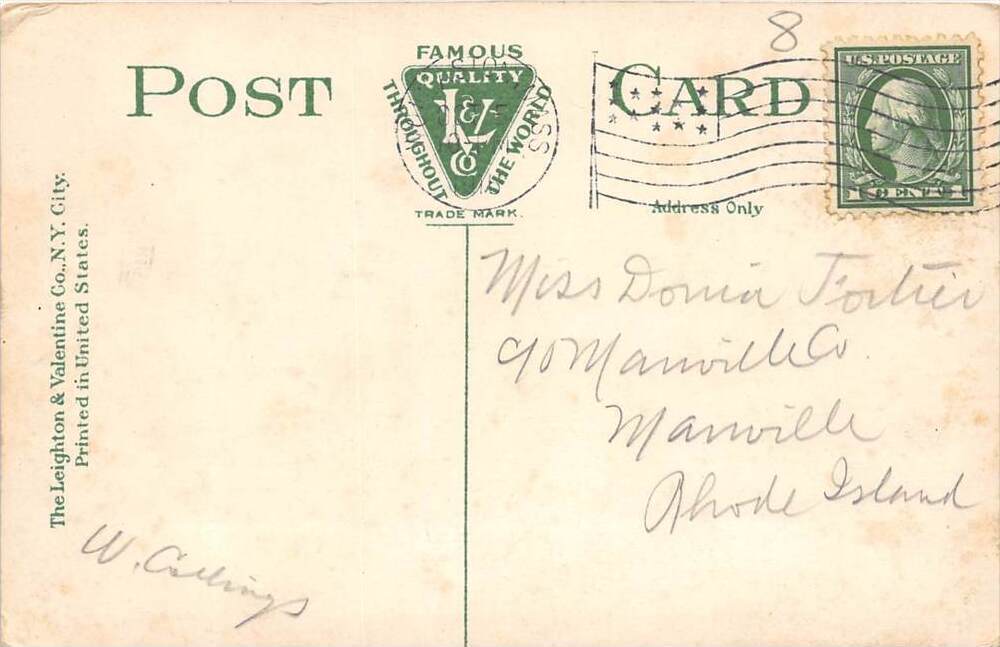 8
POST CARD
FAMOUS
QUALITY
L & V
Co
THROUGHOUT
THE WORLD
TRADE MARK.
Address Only
U.S. POSTAGE
1 CENT 1
The Leighton & Valentine Co., N.Y. City.
Printed in United States.
Miss Donia Fortier
c/o Manville Co
Manville
Rhode Island
W. Collings